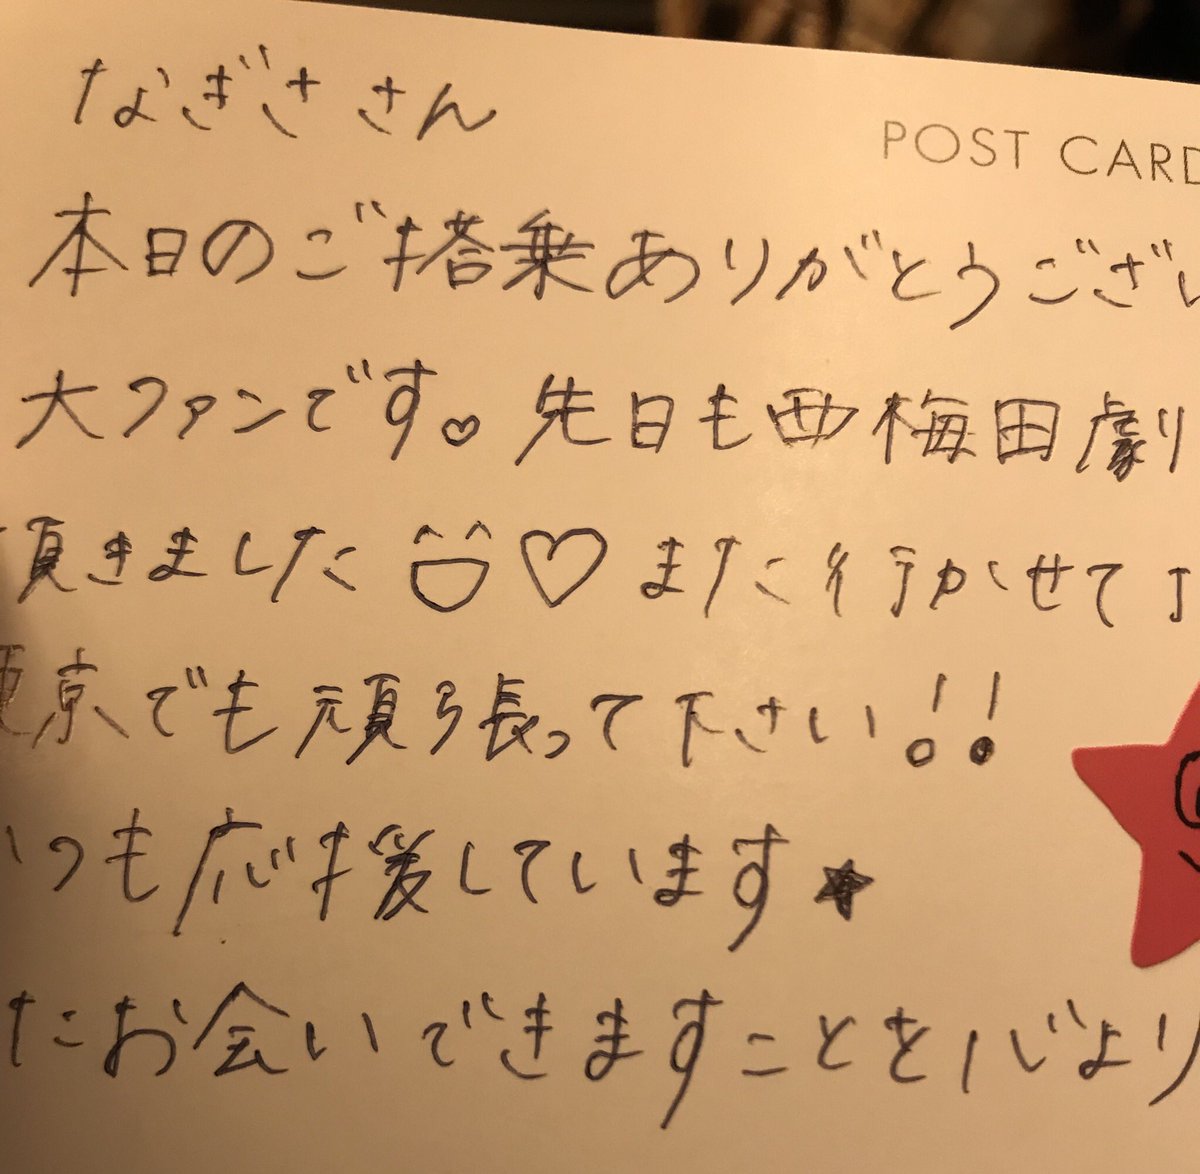 なぎささん
POST CARD
本日のご搭乗ありがとうござい
大ファンです。先日も西梅田劇
頂きました♡また行かせて
東京でも頑張って下さい!!
いつも応援しています★
たお会いできますことを心より